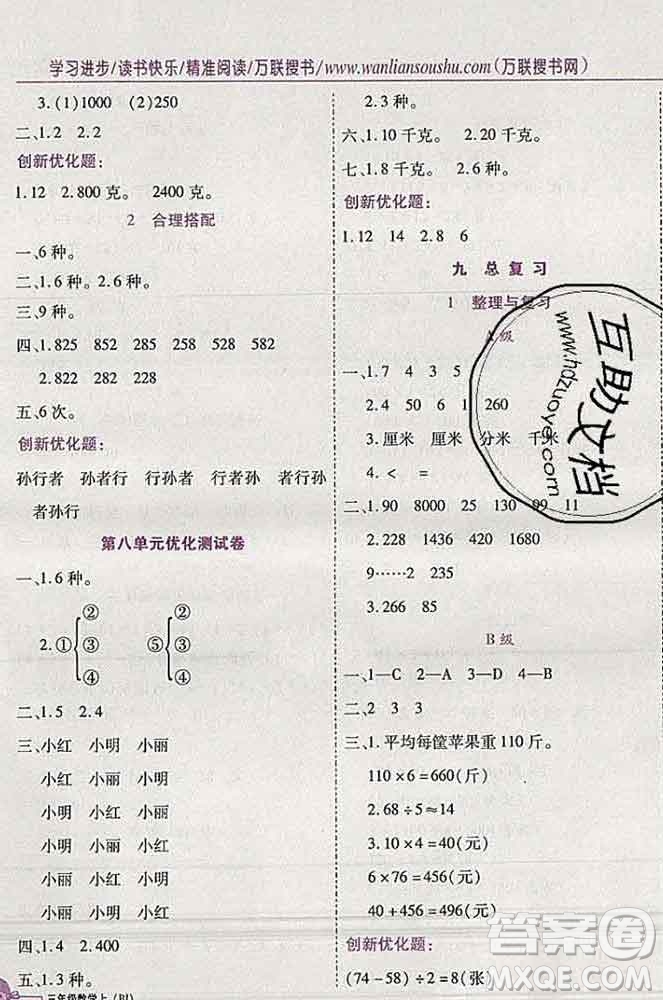 学习进步/读书快乐/精准阅读/万联搜书/www.wanliansoushu.com(万联搜书网)
3.(1)1000 (2)250
二、1.2 2.2
创新优化题:
1.12 2.800克。 2400克。
2 合理搭配
一、6种。
二、1.6种。2.6种。
三、9种。
四、1.825 852 285 258 528 582
2.822 282 228
五、6次。
创新优化题:
孙行者 孙者行 行孙者 行者孙 者行孙
者孙行
第八单元优化测试卷
一、1.6种。
2.①{②③④ ⑤{②③④
二、1.5 2.4
三、小红 小明 小丽
小红 小丽 小明
小明 小红 小丽
小明 小丽 小红
小丽 小红 小明
小丽 小明 小红
四、1.4 2.400
五、1.3种。
三年级数学上(BJ)
2.3种。
六、1.10千克。 2.20千克。
七、1.8千克。 2.6种。
创新优化题:
1.12 14 2.8 6
九 总复习
1 整理与复习
A级
一、1.7 4 3 5
2.4 50 6 1 260
3.厘米 厘米 分米 千米
4.< =
二、1.90 8000 25 130 99 11
2.228 429 420 1680
9……2 235
3.266 85
B级
一、1—C 2—A 3—D 4—B
二、2 3 3
三、1.平均每筐苹果重110斤。
110×6=660(斤)
2.68÷5≈14
3.10×4=40(元)
6×76=456(元)
40+456=496(元)
创新优化题:
(74-58)÷2=8(张)
互助文档
www.hdzuoye.com
答案圈
MXQE.COM